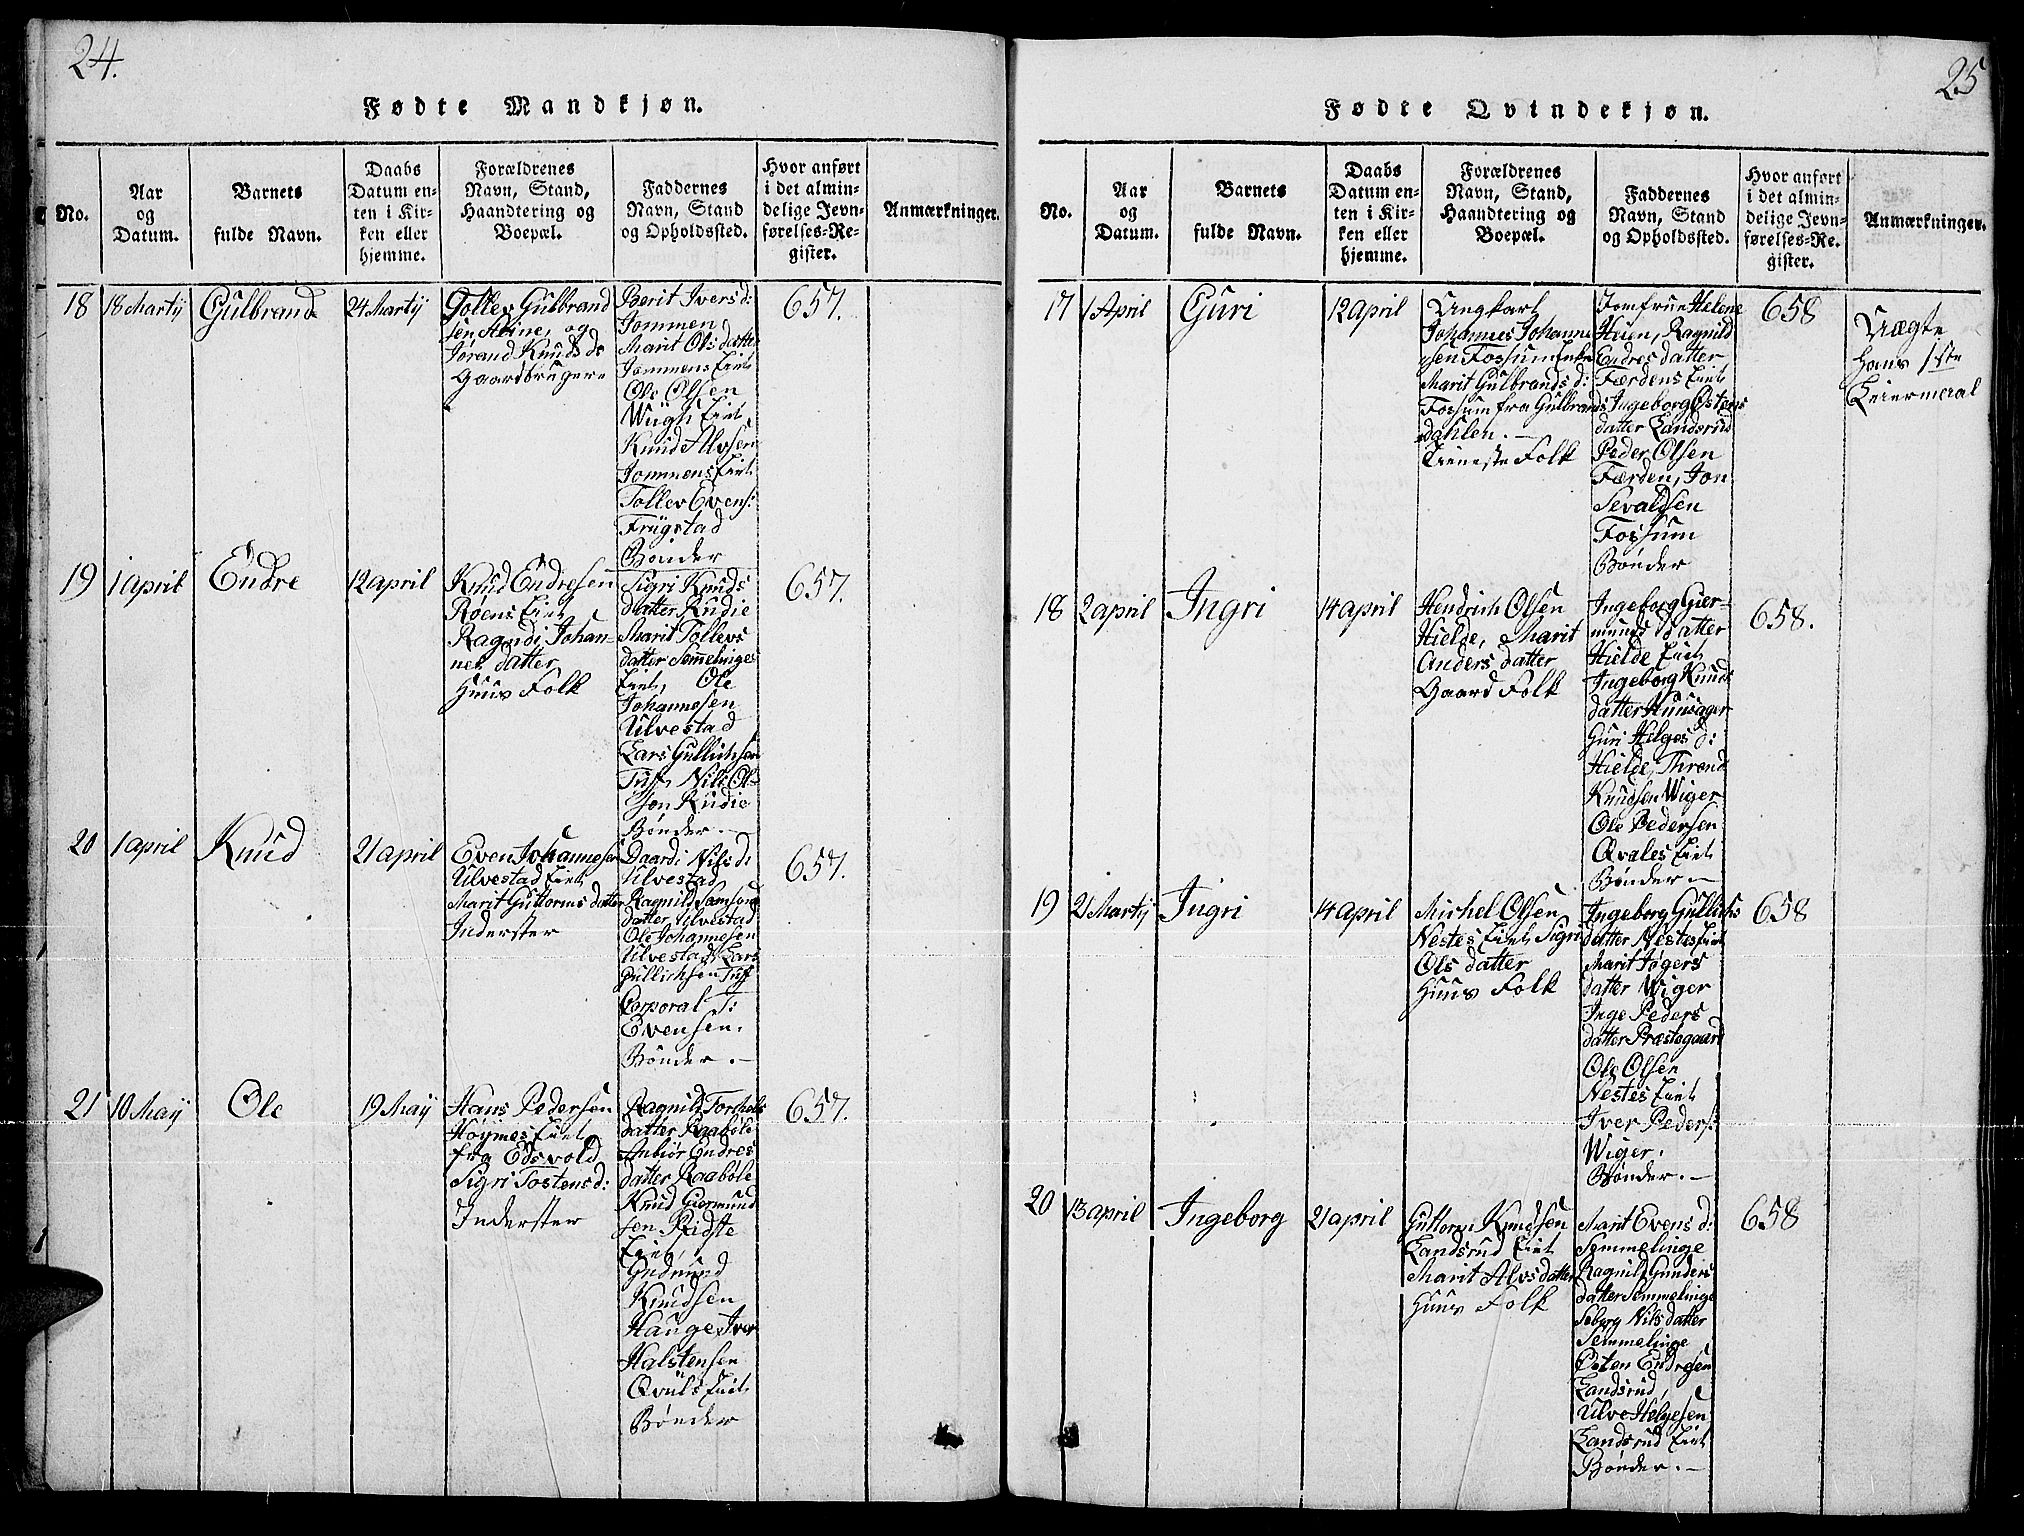 24.
Fødte Mandkjøn.
No.
Aar
og
Datum.
Barnets
fulde Navn.
Daabs
Datum en-
ten i Kir-
ken eller
hjemme.
Forældrenes
Navn, Stand,
Haandtering og
Boepæl.
Faddernes
Navn, Stand
og Opholdssted.
Hvor anført
i det almin-
delige Jevn-
førelses-Re-
gister.
Anmærkninger.
18
18 Martij
Gulbrand
24 Martij
Tollev Gulbrand
sen og
Jørand Knuds d:
Gaardbrugere
Berit Ivers d:
Jommen
Marit Ols datter
Jommens Eiet
Ole Olsen
Eiet
Knud Alvsen
Jommens Eiet
Tollev Evens:
Frügstad
Bønder
657.
19
1 April
Endre
12 april
Knud Endresen
Røens Eiet
Ragndi Johan-
nes datter
Huus Folk
Sigri Knuds
datter Rudie
Marit Tollevs
datter Semmelinges
Eiet, Ole
Johannesen
Ulvestad
Lars Gullichsen
Tuff, Nils Ol-
sen Rudie
Bønder.—
657.
20
1 april
Knud
21 april
Even Johannesen
Ulvestad Eiet
Marit Guttorms datter
Inderster
Daardi Nils d:
Ulvestad
Ragnild Samsons
datter Ulvestad
Ole Johannesen
Ulvestad Lars
Gullichsen Tuff
Corporal T:
Evensen.
Bønder.—
657.
21
10 Maij
Ole
19 Maij
Hans Pedersen
Høymes Eiet
fra Edsvold
Sigri Tostens d:
Inderster
Ragnild Torchels
datter Raabøle
Anbiør Endres
datter Raabøle
Knud Giermund
sen
Eiet,
Gudmund
Knudsen
Hauge, Iver
Halstensen
Qvals Eiet
Bønder
657.
25
Fødte Qvindekjøn.
No.
Aar
og
Datum.
Barnets
fulde Navn.
Daabs
Datum en-
ten i Kir-
ken eller
hjemme.
Forældrenes
Navn, Stand,
Haandtering og
Boepæl.
Faddernes
Navn, Stand
og Opholdssted.
Hvor anført
i det almin-
delige Jevn-
førelses-Re-
gister.
Anmærkninger.
17
1 April
Guri
12 april
Ungkarl
Johannes Johanne
sen Fossum
Marit Gulbrands d:
Fossum fra Gulbrands
dahlen.—
Tieneste Folk
Jomfrue Helene
Heien, Ragnild
Endres datter
Færdens Eiet
Ingeborg Østens
datter Landsrud
Peder Olsen
Færden, Jon
Sevaldsen
Fossum
Bønder
658
Uægte
Hans 1ste
Leiermaal
18
2 april
Ingri
14 april
Hendrich Olsen
Hielde, Marit
Anders datter
Gaard Folk
Ingeborg Gier-
munds datter
Hielde Eiet
Ingeborg Knuds
datter Hunsager
Guri Helges d:
Hielde, Thrond
Knudsen Wiger
Ole Pedersen
Qvales Eiet
Bønder.—
658.
19
21 Martij
Ingri
14 april
Michel Olsen
Nestes Eiet Sigri
Ols datter
Huus Folk
Ingeborg Gullichs
datter Nestes Eiet
Marit Tøgers
datter Wiger
Inge Peders
datter Præstegaard
Ole Olsen
Nestes Eiet
Iver Peders:
Wiger.
Bønder.—
658
20
13 april
Ingeborg
21 april
Guttorm Knudsen
Landsrud Eiet
Marit Alvs datter
Huus Folk
Marit Evens d:
Semmelinge
Ragnild Gunders
datter Semmelinge
Seborg Nils datter
Semmelinge
Østen Endresen
Landsrud,
Ulve Helgesen
Landsrud Eiet
Bønder.—
658